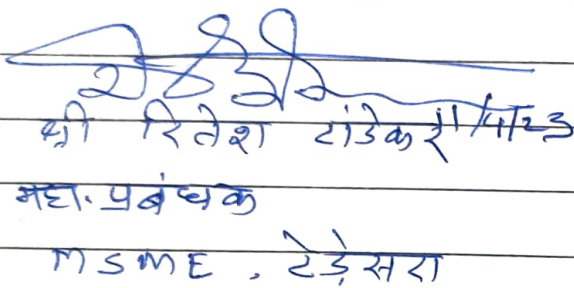 श्री रितेश टांडेकर 11/4/23
महा. प्रबंधक
MSME, टेड़ेसरा